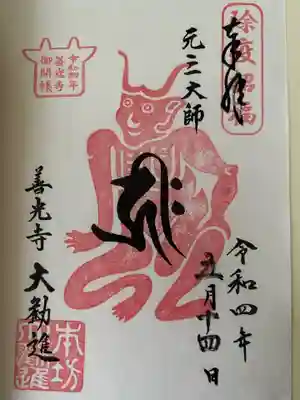 除疫招福
奉拝
元三大師
令和四年
善光寺
御開帳
令和四年
五月十四日
善光寺
大勧進
本坊
大勧進